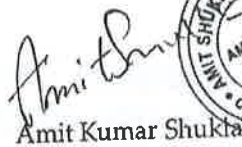 Amit Shu
AMIT SHUK
Amit Kumar Shukla